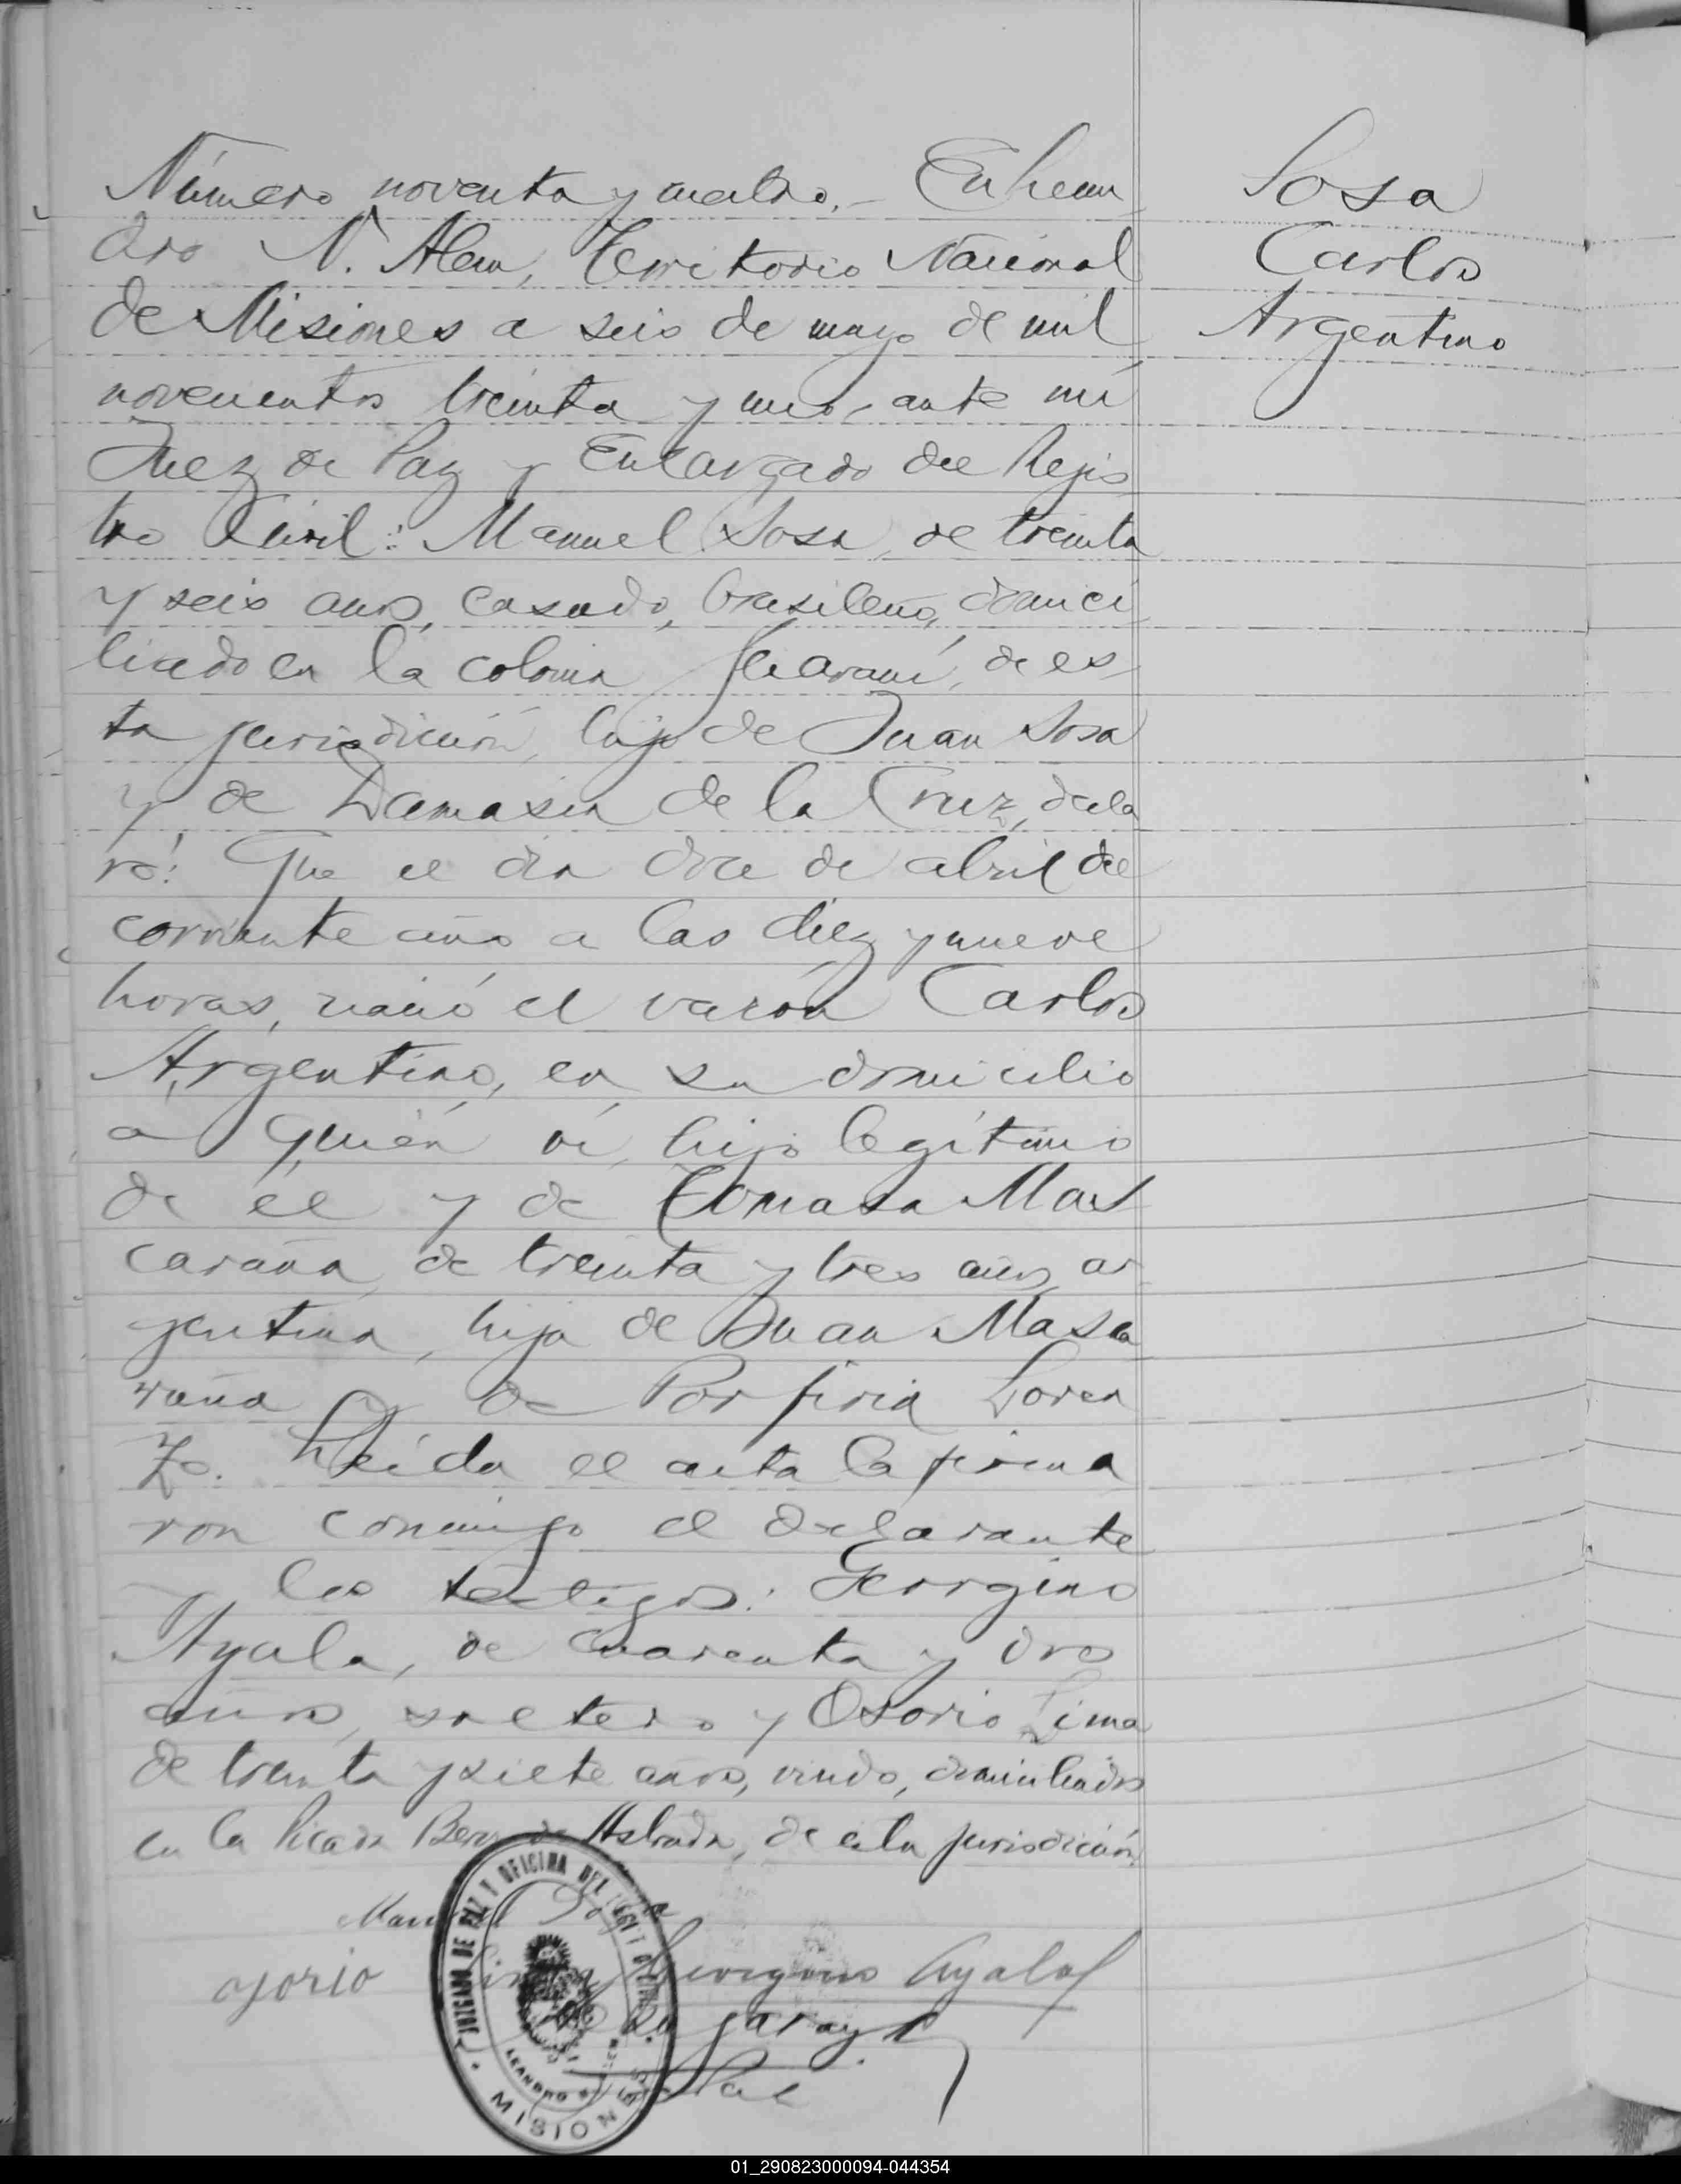 Número noventa y cuatro.- En Lean
dro N. Alem, Territorio Nacional
de Misiones a seis de mayo de mil
novecientos treinta y uno, ante mí
Juez de Paz y Encargado del Regis
tro Civil: Manuel Sosa, de treinta
y seis años, casado, brasileño, domici
liado en la colonia Guaraní, de es
ta jurisdicción, hijo de Juan Sosa
y de Damasia de la Cruz, decla
ró: Que el día doce de abril del
corriente año a las diez y nueve
horas, nació el varón Carlos
Argentino, en su domicilio
a quién ví, hijo legítimo
de él y de Tomasa Mas
caraña, de treinta y tres años, ar
gentina, hija de Juan Masca
raña y de Porfiria Loren
zo. Leída el acta la firma
ron conmigo el declarante
y los testigos: Georgino
Ayala, de cuarenta y dos
años, soltero y Osorio Lima
de treinta y siete años, viudo, domiciliados
en la Picada Beron de Astrada, de esta jurisdicción
Manuel Sosa
osorio Lima Georgino Ayala
Garay
JUZGADO DE PAZ Y OFICINA DEL REGISTRO CIVIL
LEANDRO N. ALEM
MISIONES
Sosa
Carlos
Argentino
01_290823000094-044354